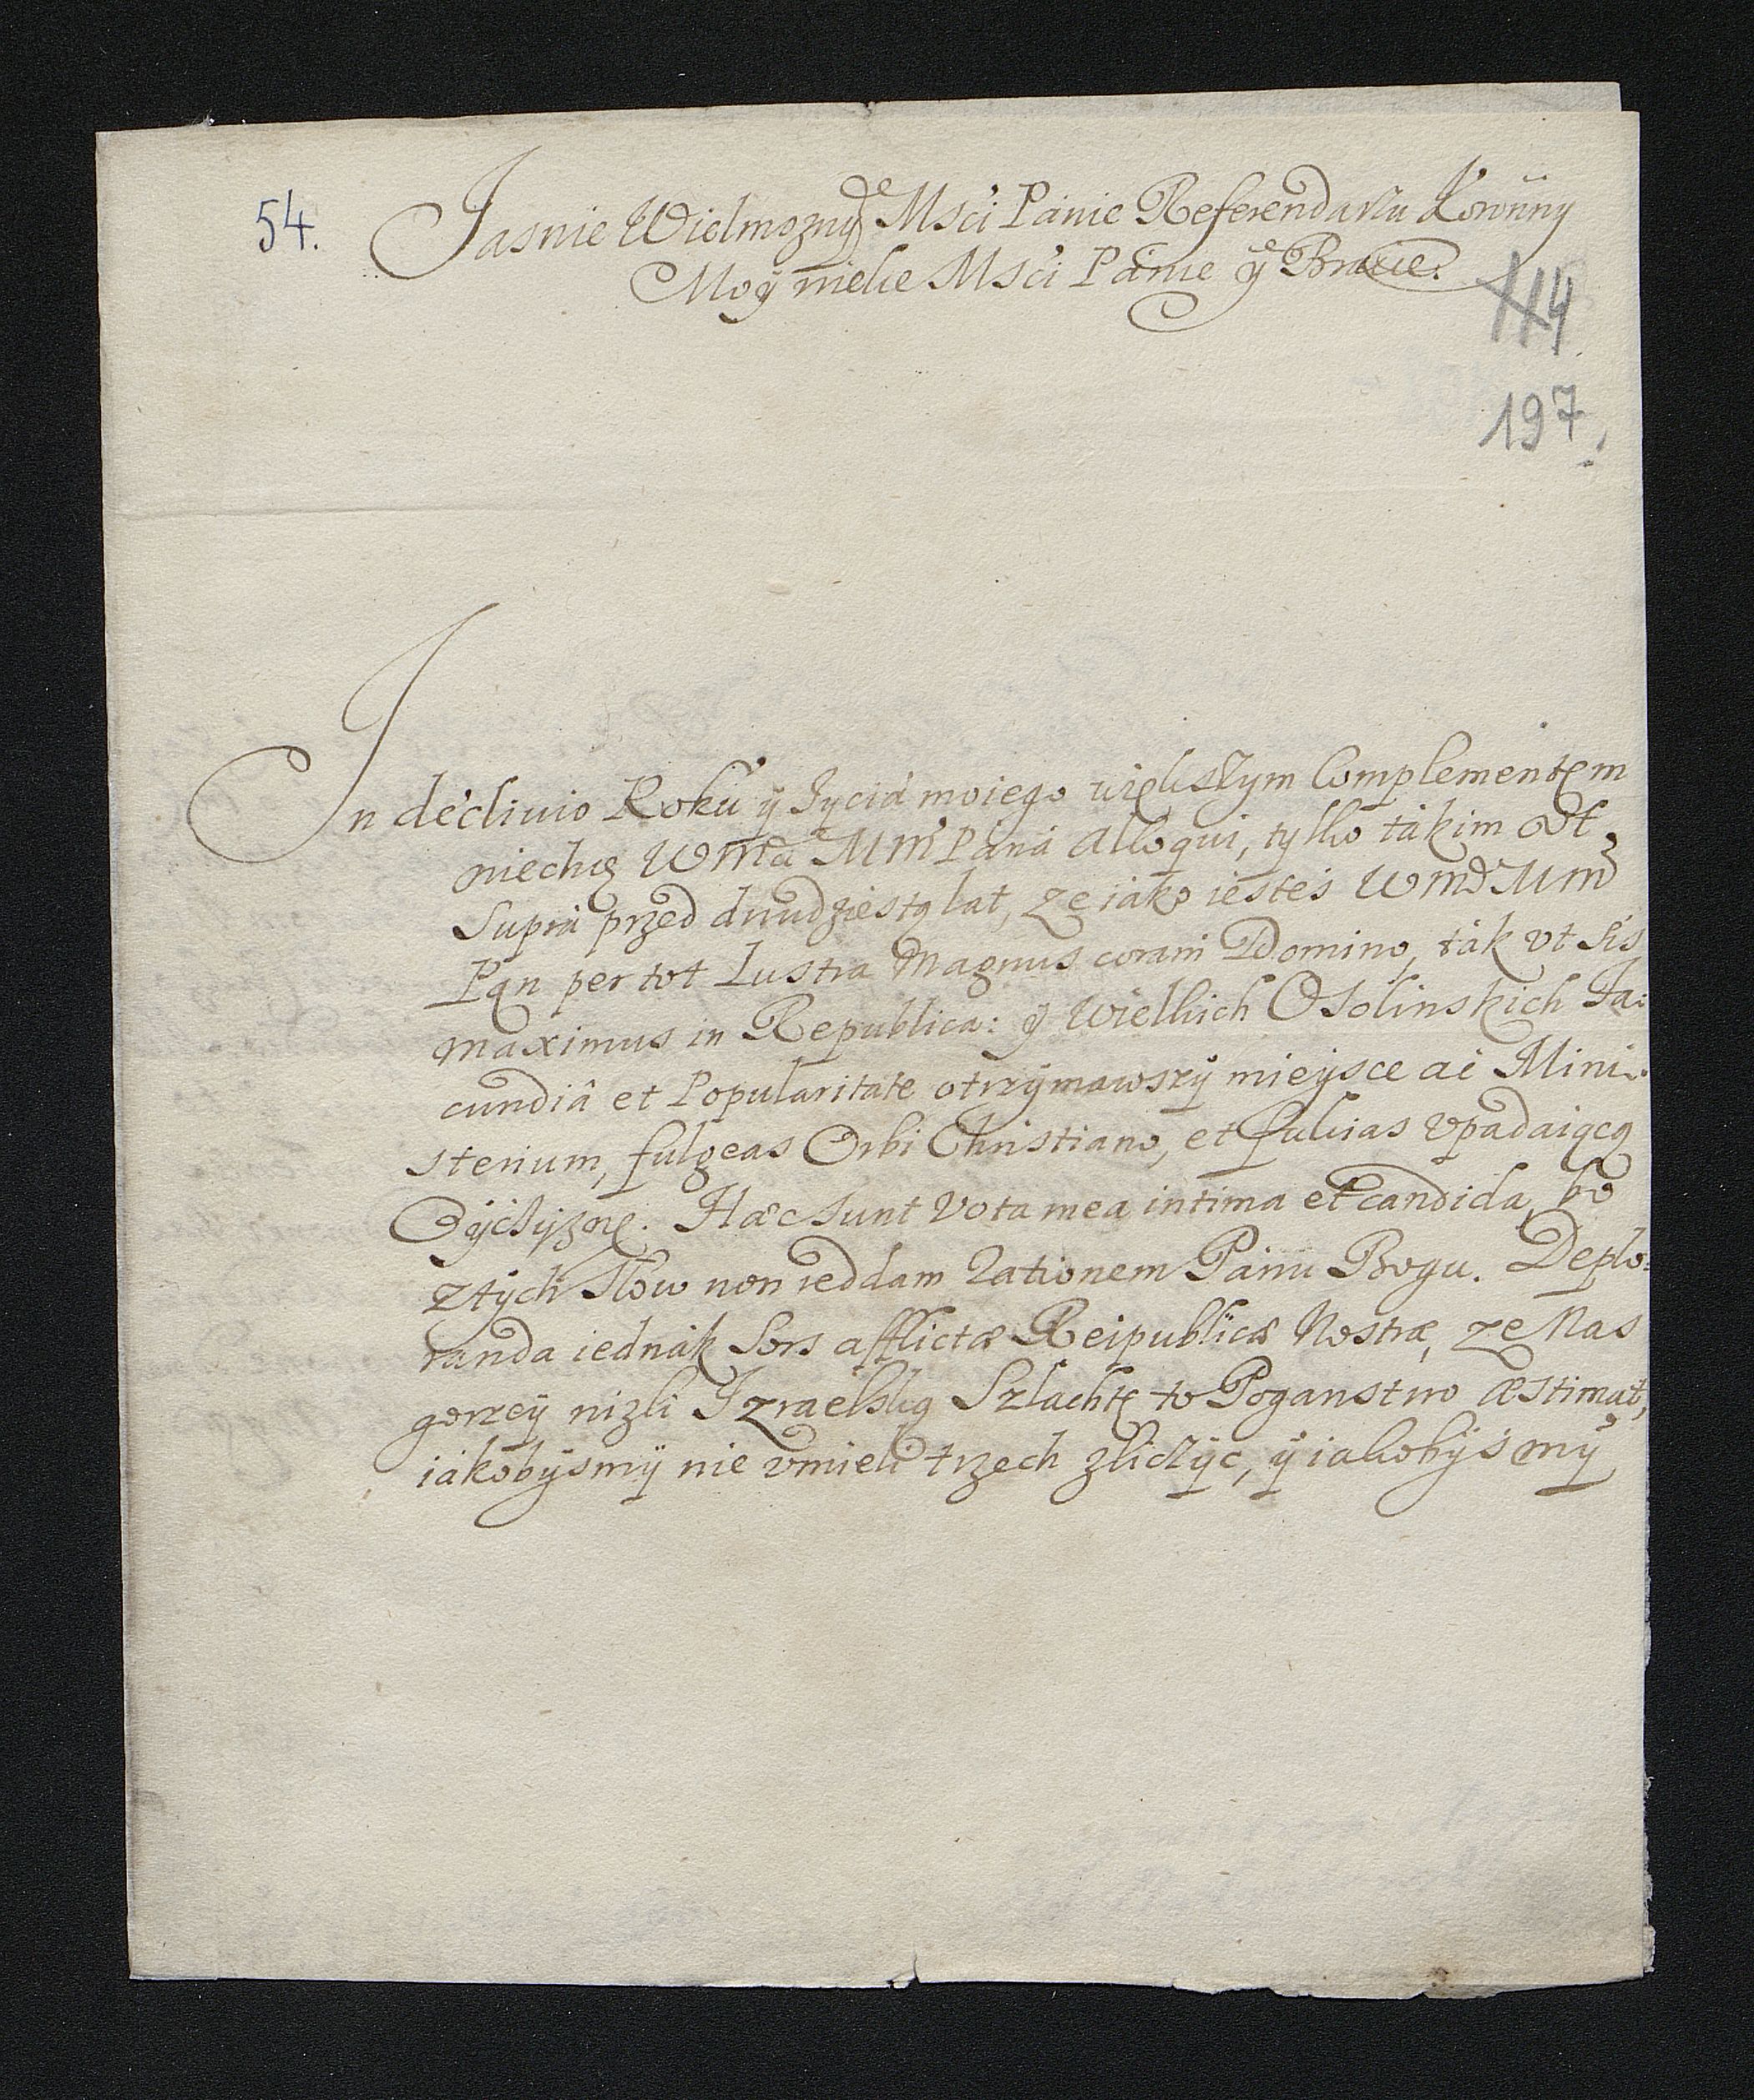 54.
Jasnie Wielmozny Msci Panie Referendarzu Koronny
Moy wielce Msci Panie ÿ Bracie.
114
197.
In declivio Roku ÿ Zycia moiego większym Complementem
niechcę WMcia MM Pana alloqui, tylko takim vt
Supra przed dwudziestą lat, Ze iako iesteś WMć MM
Pan per tot Lustra Magnus coram Domino, tak vt sis
maximus in Republica: ÿ Wielkich Ossolinskich Fa:
cundiâ et Popularitate otrzÿmawszÿ mieÿsce ac Mini:
sterium, fulgeas Orbi Christiano, et fulcias vpadaiącą
Oÿczÿznę. Hæc sunt Vota mea intima et candida, bo
z tÿch słow non reddam rationem Panu Bogu. Deplo:
randa iednak Sors afflictæ Reipublicæ Nostræ, ze Nas
gorzeÿ nizli Izraelską Szlachtę to Poganstwo æstimat,
iakobÿsmÿ nie vmieli trzech zliczÿc, ÿ iakobÿsmÿ